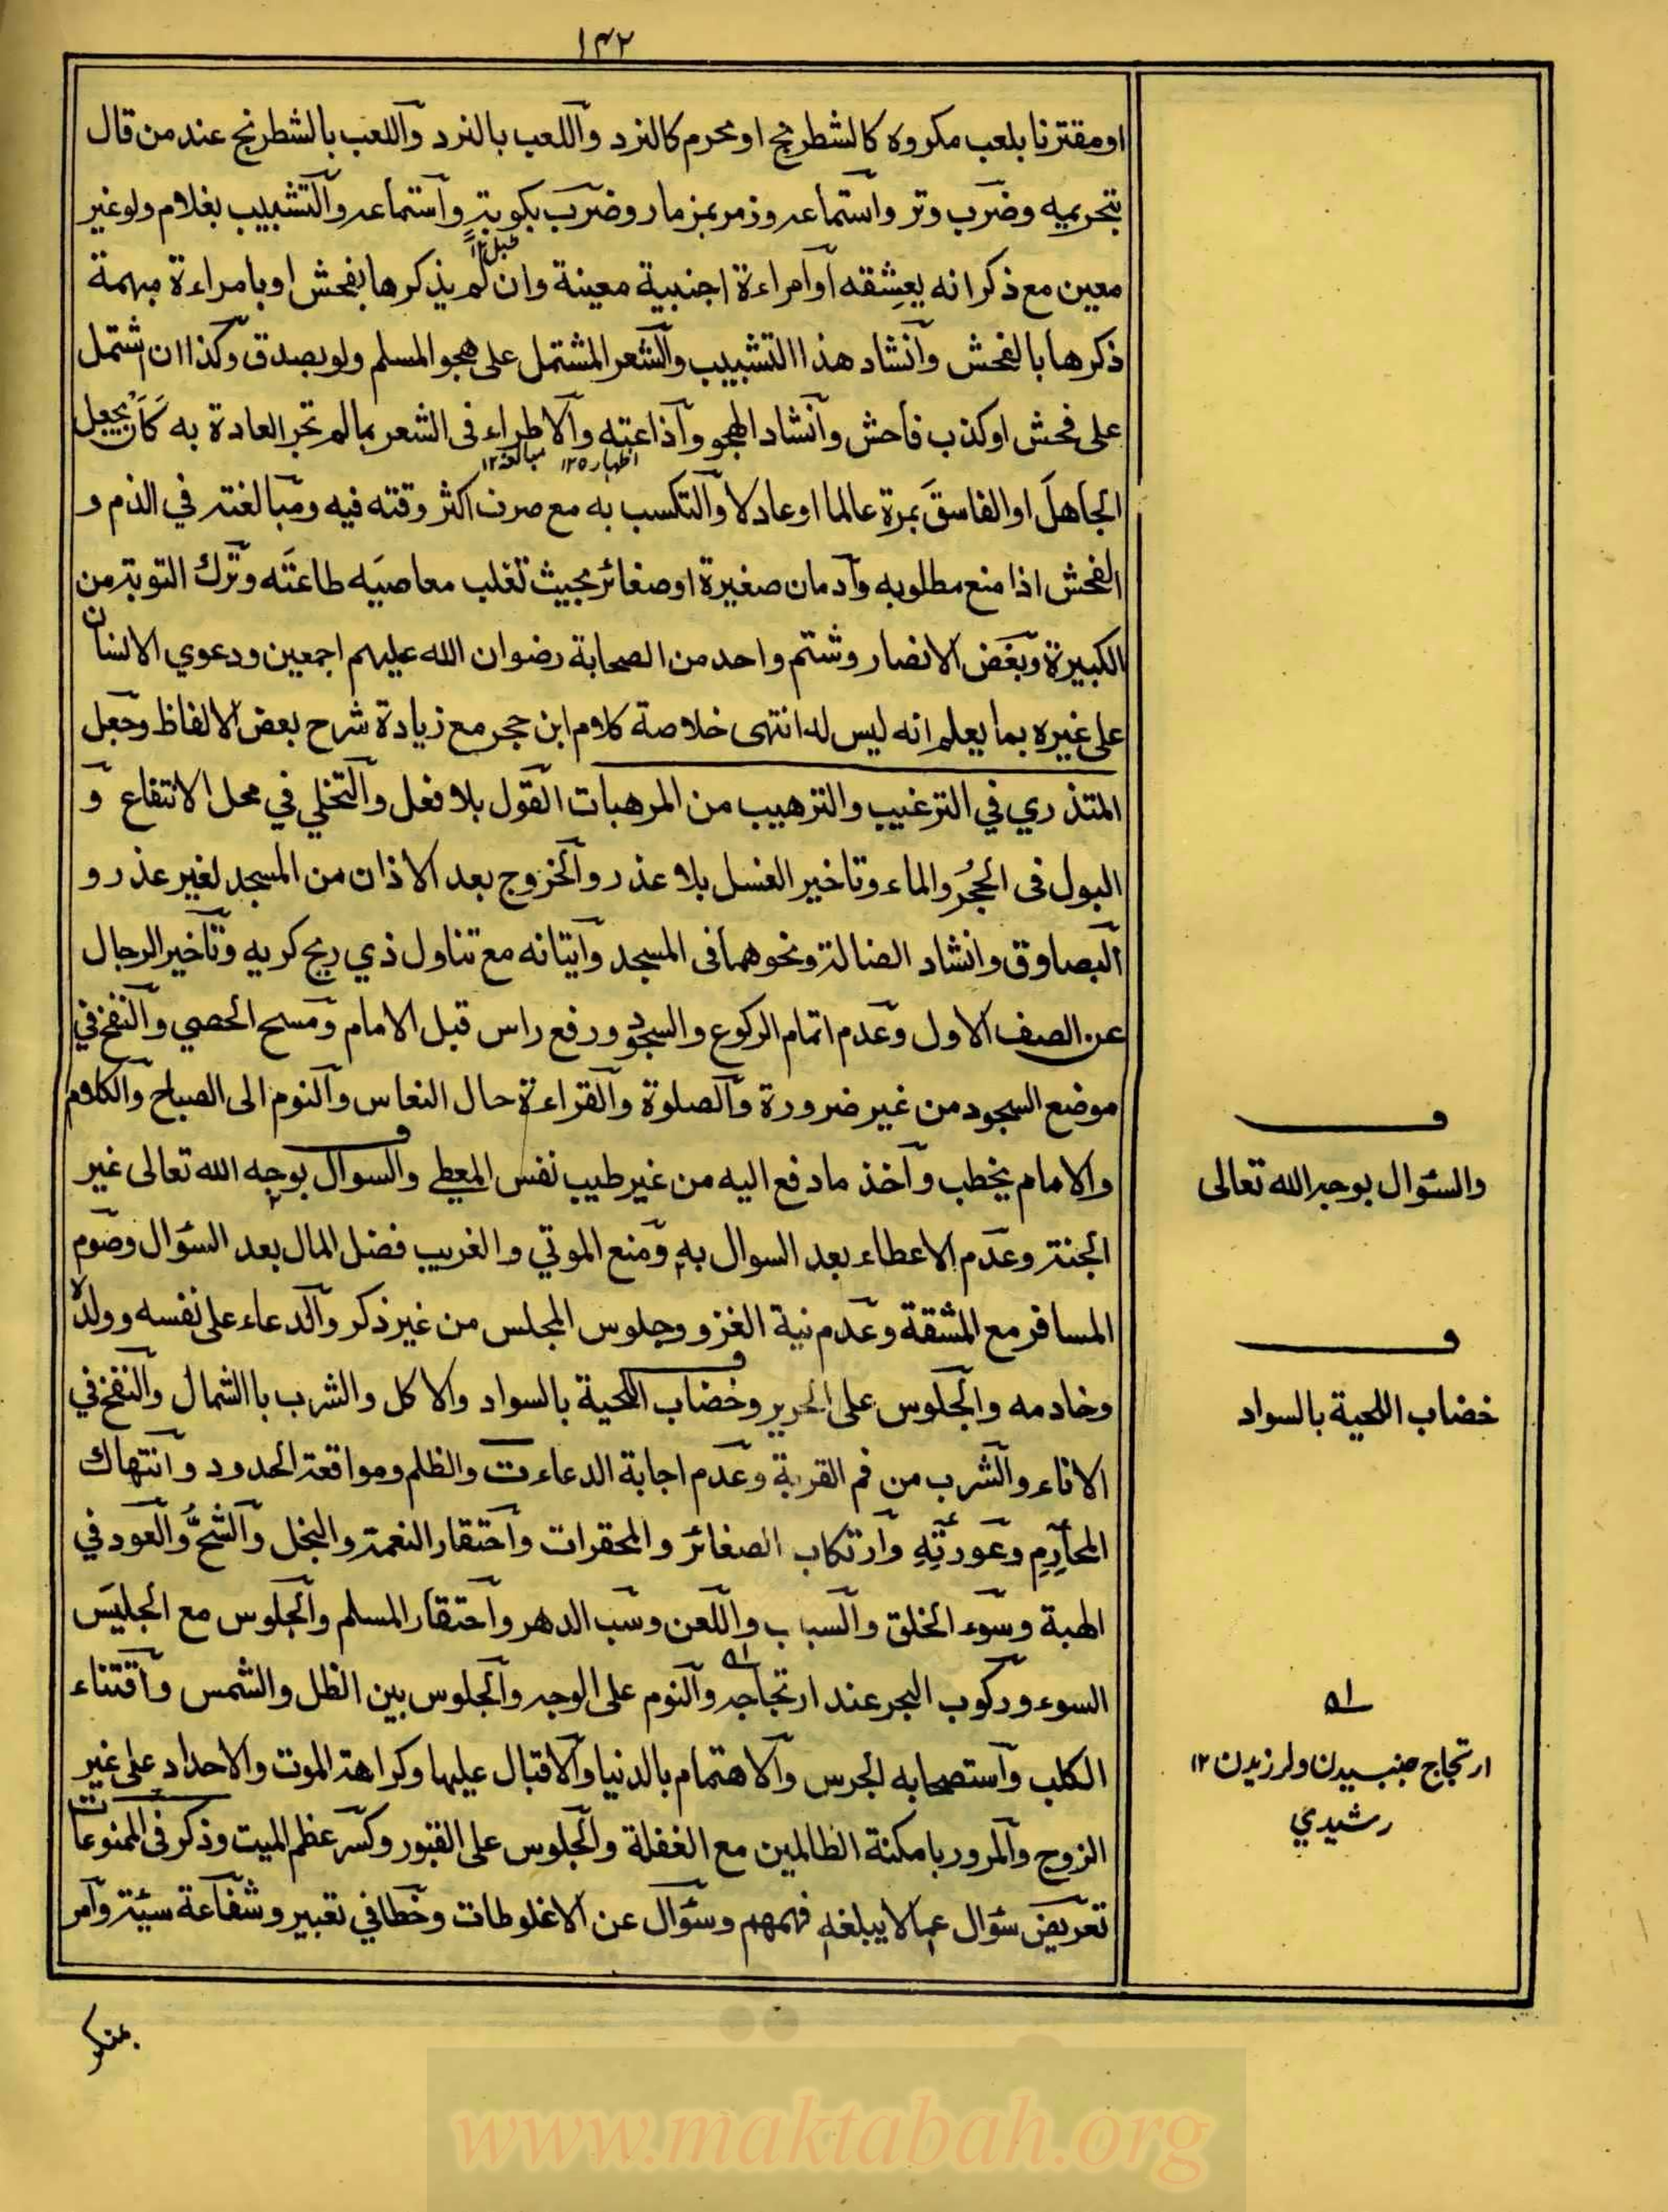 ۱۴۲
او مقترنا بلعب مكروه كالشطرنج او محرم كالنرد واللعب بالنرد واللعب بالشطرنج عند من قال
بتحريمه وضرب وتر واستماعه وزمر بمزمار وضرب بكوبة واستماعه والتشبيب بغلام ولو غير
طبل ۱۲
معين مع ذكر انه يعشقه او امراءة اجنبية معينة وان لم يذكرها بفحش او بامراءة مبهمة
ذكرها بالفحش وانشاد هذا التشبيب والشعر المشتمل على هجو المسلم ولو بصدق وكذا ان اشتمل
على فحش او كذب فاحش وانشاد الهجو واذاعته والاطراء فى الشعر بما لم تجر العادة به كَاَن يجعل
اظهار ۱۲ مبالغه ۱۲
الجاهلَ او الفاسقَ بمرة عالما او عادلا والتكسب به مع صرف اكثر وقته فيه ومبالغته في الذم و
الفحش اذا منع مطلوبه وادمان صغيرة او صغائر بحيث تغلب معاصيَه طاعتَه وترك التوبة من
الكبيرة وبغض الانصار وشتم واحد من الصحابة رضوان الله عليهم اجمعين ودعوي الانسان
على غيره بما يعلم انه ليس له انتهى خلاصة كلام ابن حجر مع زيادة شرح بعض الالفاظ وجعل
المتذري في الترغيب والترهيب من المرهبات القول بلا فعل والتخلي في محل الانتفاع و
البول فى الجُحر والماء وتاخير الغسل بلا عذر والخروج بعد الاذان من المسجد لغير عذر و
البصاوق وانشاد الضالة ونحوهما فى المسجد واتيانه مع تناول ذي ريح كريه وتاخير الرجال
عن الصف الاول وعدم اتمام الركوع والسجود ورفع راس قبل الامام ومسح الحصي والنفخ في
موضع السجود من غير ضرورة والصلوة والقراءة حال النعاس والنوم الى الصباح والكلام
والامام يخطب واخذ ما دفع اليه من غير طيب نفس المعطي والسوال بوجه الله تعالى غير
الجنة وعدم الاعطاء بعد السوال به ومنع الموتي والغريب فضل المال بعد السؤال وصوم
المسافر مع المشقة وعدم نية الغزو وجلوس المجلس من غير ذكر والدعاء على نفسه وولده
وخادمه والجلوس على الحرير وخضاب اللحية بالسواد والاكل والشرب باالشمال والنفخ في
الاناء والشرب من فم القربة وعدم اجابة الدعاء ت والظلم ومواقعة الحدود وانتهاك
المحارم وعورته وارتكاب الصغائر والمحقرات واحتقار النعمة والبخل والشحُّ والعود في
الهبة وسوء الخلق والسباب واللعن وسب الدهر واحتقار المسلم والجلوس مع الجليس
السوء وركوب البحر عند ارتجاجه والنوم على الوجه والجلوس بين الظل والشمس واقتناء
الكلب واستصحابه الجرس والاهتمام بالدنيا والاقبال عليها وكراهة الموت والاحداد على غير
الزوج والمرور بامكنة الظالمين مع الغفلة والجلوس على القبور وكسر عظم الميت وذكر فى الممنوعات
تعريض سؤال عما لا يبلغه فهمهم وسؤال عن الاغلوطات وخطا في تعبير وشفاعة سيئة وامر
بمنكر
ف
والسئوال بوجه الله تعالى
ف
خضاب اللحية بالسواد
۵۱
ارتجاج جنبيدن ولرزيدن ۱۲
رشيدي
www.maktabah.org